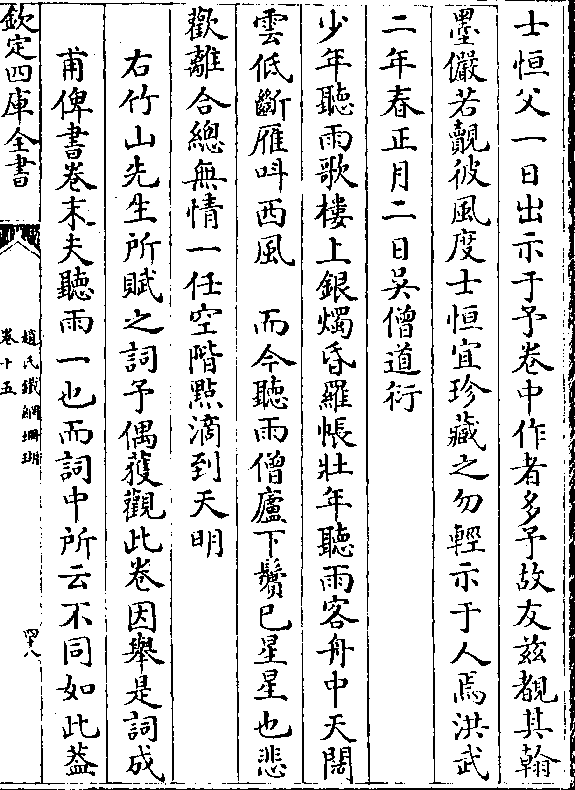 士恒父一日出示于予卷中作者多予故友兹覩其翰
墨儼若覿彼風度士恒宜珍藏之勿輕示于人焉洪武
二年春正月二日吳僧道衍
少年聽雨歌樓上銀燭昏羅帳壯年聽雨客舟中天闊
雲低斷雁呌西風　而今聽雨僧廬下鬢已星星也悲
歡離合總無情一任空階㸃滴到天明
右竹山先生所賦之詞予偶獲觀此卷因舉是詞成
甫俾書卷末夫聽雨一也而詞中所云不同如此葢
欽定四庫全書
趙氏鐵網珊瑚
卷十五
四八